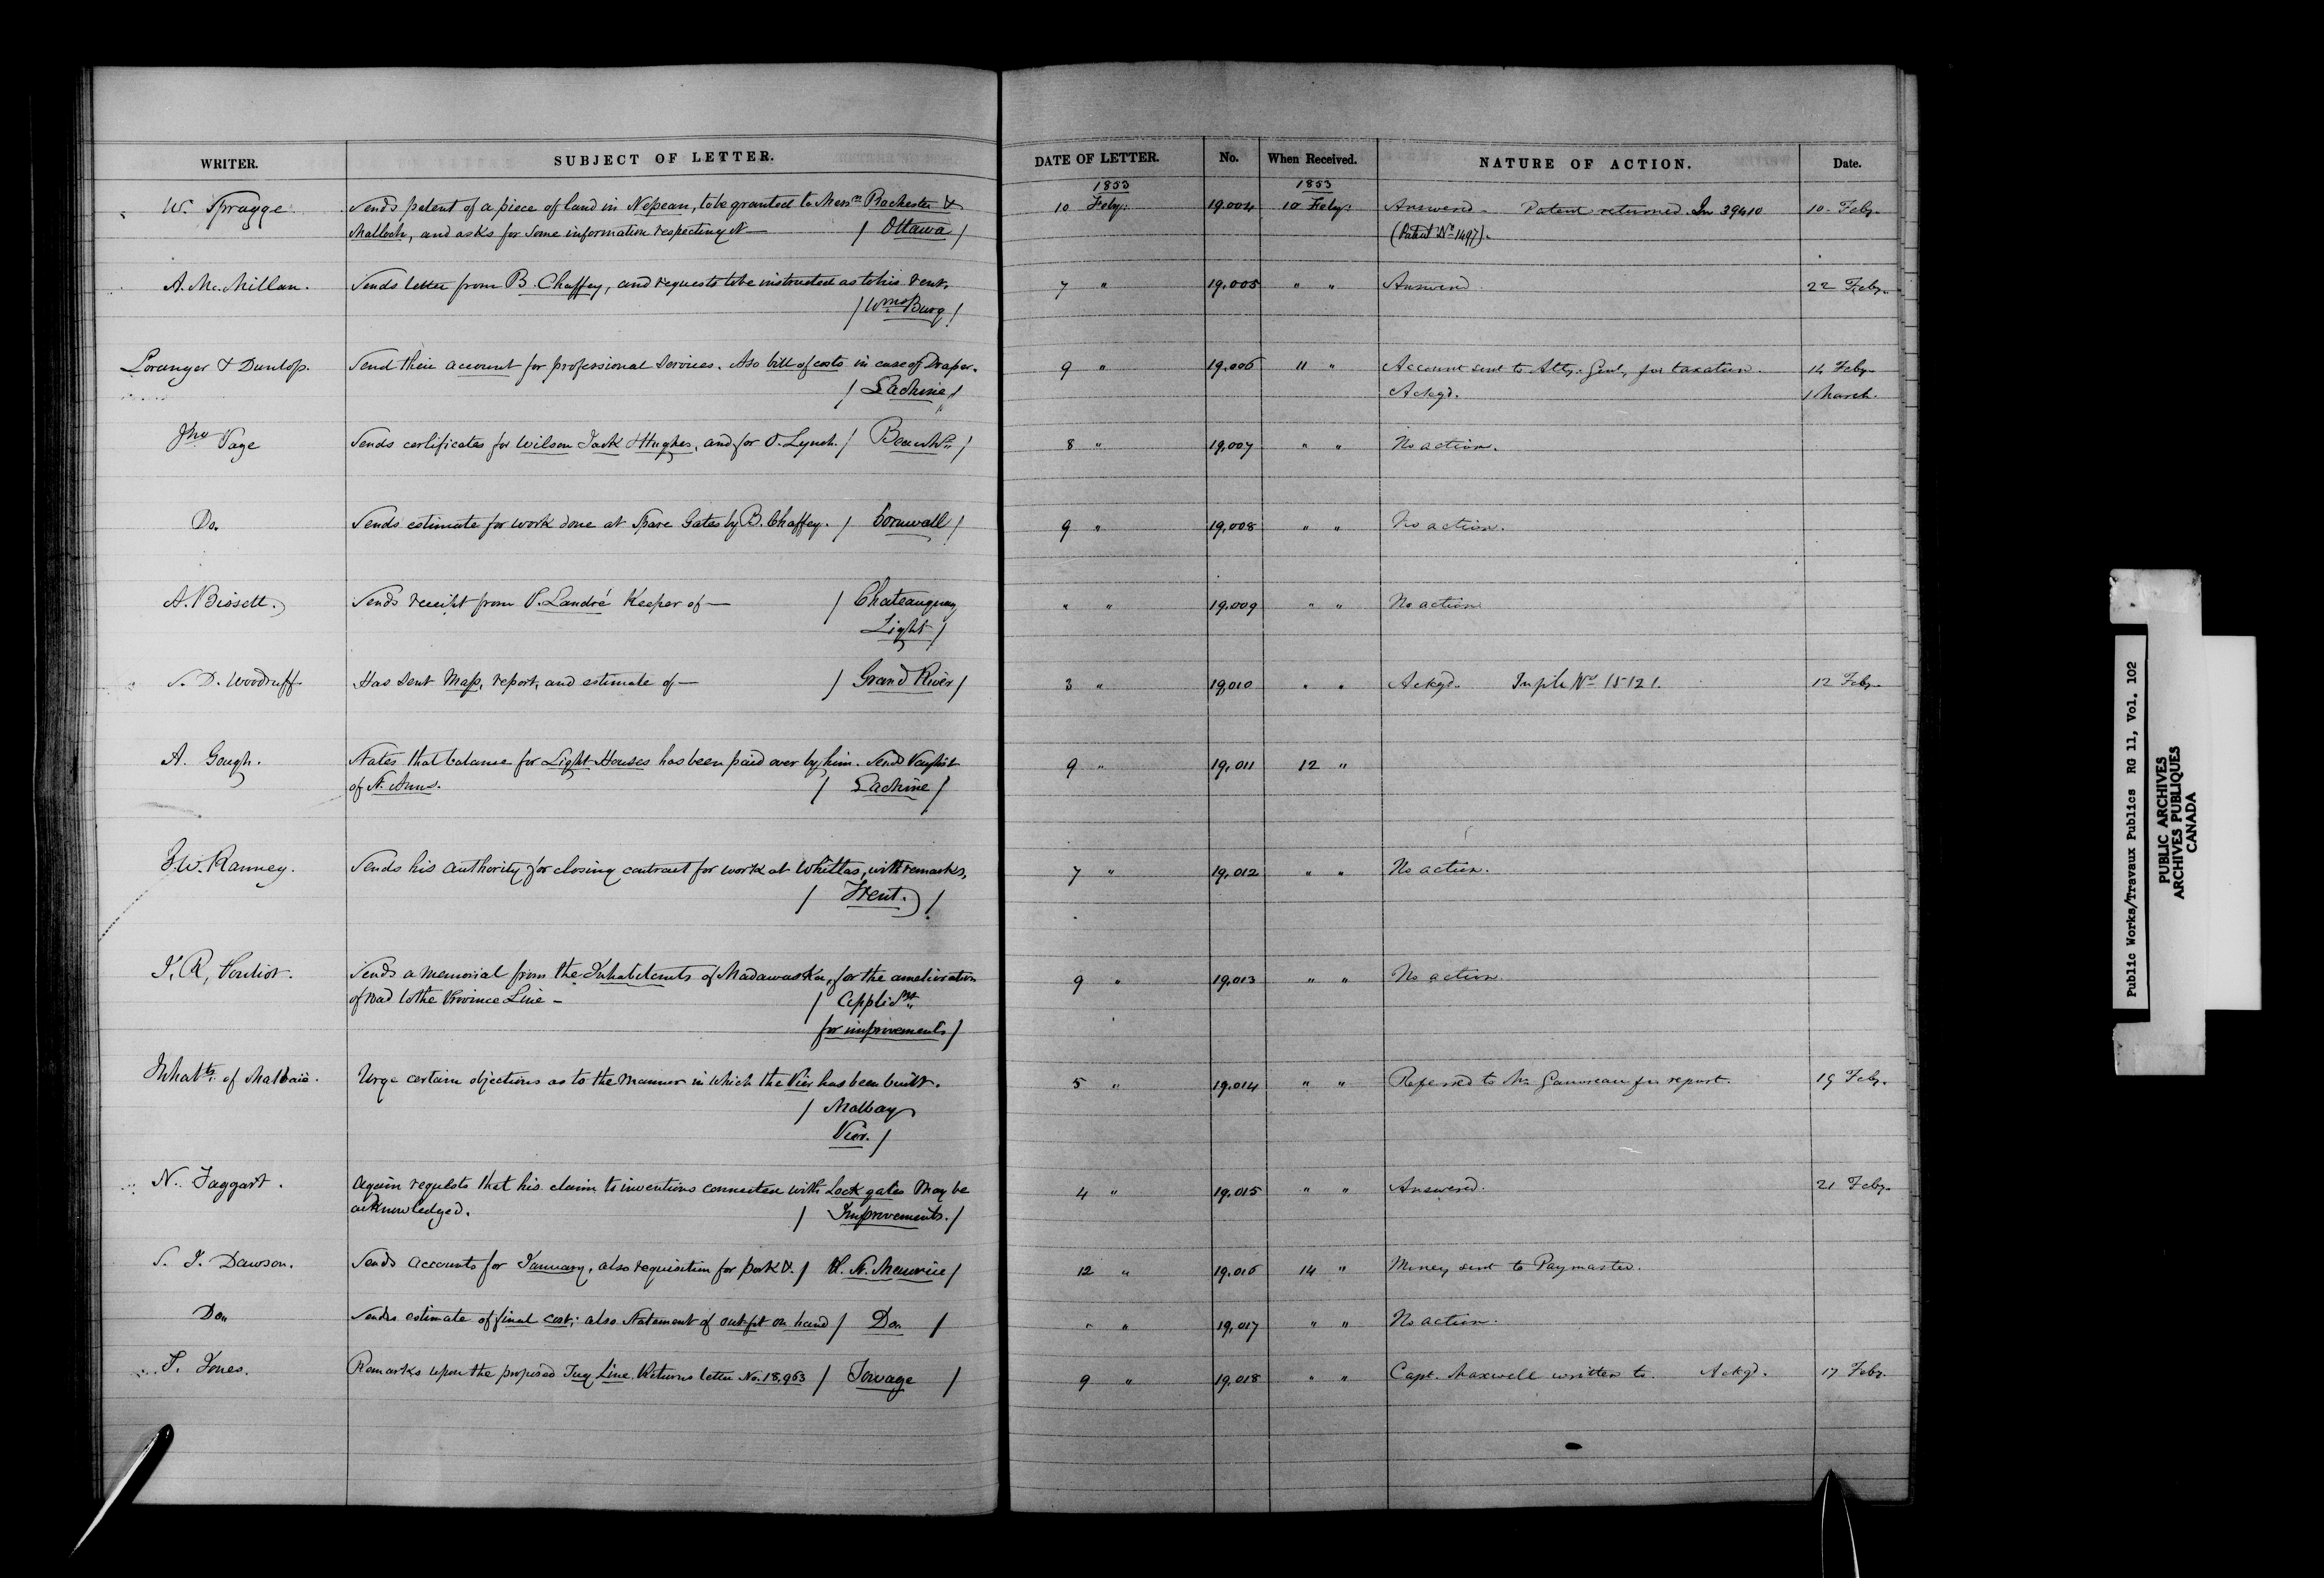 WRITER. SUBJECT OF LETTER. DATE OF LETTER. No. When Received. NATURE OF ACTION. Date.
1853 1853
W. Spragge Sends patent of a piece of land in Nepean, to be granted to Messrs Rochester & 10 Feby. 19.004 10 Feby. Answered. Patent returned In 39410 10 Feby.
Malloch, and asks for some information respecting it— / Ottawa / (Patent No 1497).
A. Mc. Millan. Sends letter from B. Chaffey, and requests to be instructed as to his rent. 7 " 19.005 " " Answered 22 Feby.
/ Wms Burg /
Loranger & Dunlop. Send their account for professional services. Also bill of costs in case of Draper. 9 " 19.006 11 " Account sent to Atty. Genl, for taxation. 14 Feby.
/ Lachine / Ackgd. 1 March.
Jno Page Sends certificates for Wilson Jack & Hughes, and for O. Lynch. / Beauhs / 8 " 19,007 " " No action.
Do. Sends estimate for work done at Spare Gates by B. Chaffey. / Cornwall / 9 " 19,008 " " No action.
A. Bissett. Sends receipt from P. Landré Keeper of — / Chateauguay " " 19.009 " " No action
Light /
S. D. Woodruff. Has sent Map, report, and estimate of — / Grand River / 3 " 19,010 " " Ackgd. In ple No 15121. 12 Feby.
A. Gough. States that balance for Light Houses has been paid over by him. Sends Paylist 9 " 19,011 12 "
of St. Anns. / Lachine /
J. W. Ranney. Sends his authority for closing contract for work at Whittas, with remarks, 7 " 19,012 " " No action.
/ Trent. /
J. R, Pouliot. Sends a memorial from the Inhabitants of Madawaska, for the amelioration 9 " 19,013 " " No action
of road to the Province Line —
for improvements /
Inhabts of Malbaie. Urge certain objections as to the manner in which the Pier has been built. 5 " 19.014 " " Referred to Mr Gauvreau for report. 19 Feby.
/ Malbay
Pier. /
N. Taggart. Again requests that his claim to inventions connected with Lock gates may be 4 " 19,015 " " Answered. 21 Feby.
acknowledged. / Improvements. /
S. J. Dawson. Sends accounts for January, also requisition for pork &. / R. St. Maurice / 12 " 19,016 14 " Money sent to Paymaster.
Do. Sends estimate of final cost; also Statement of out-fit on hand / Do. / " " 19,017 " " No action.
T. Jones. Remarks upon the proposed Tug Line. Returns letter No. 18,963 / Towage / 9 " 19,018 " " Capt. Maxwell written to. Ackgd. 17 Feby.
Public Works/Travaux Publics RG 11, Vol. 102
PUBLIC ARCHIVES
ARCHIVES PUBLIQUES
CANADA